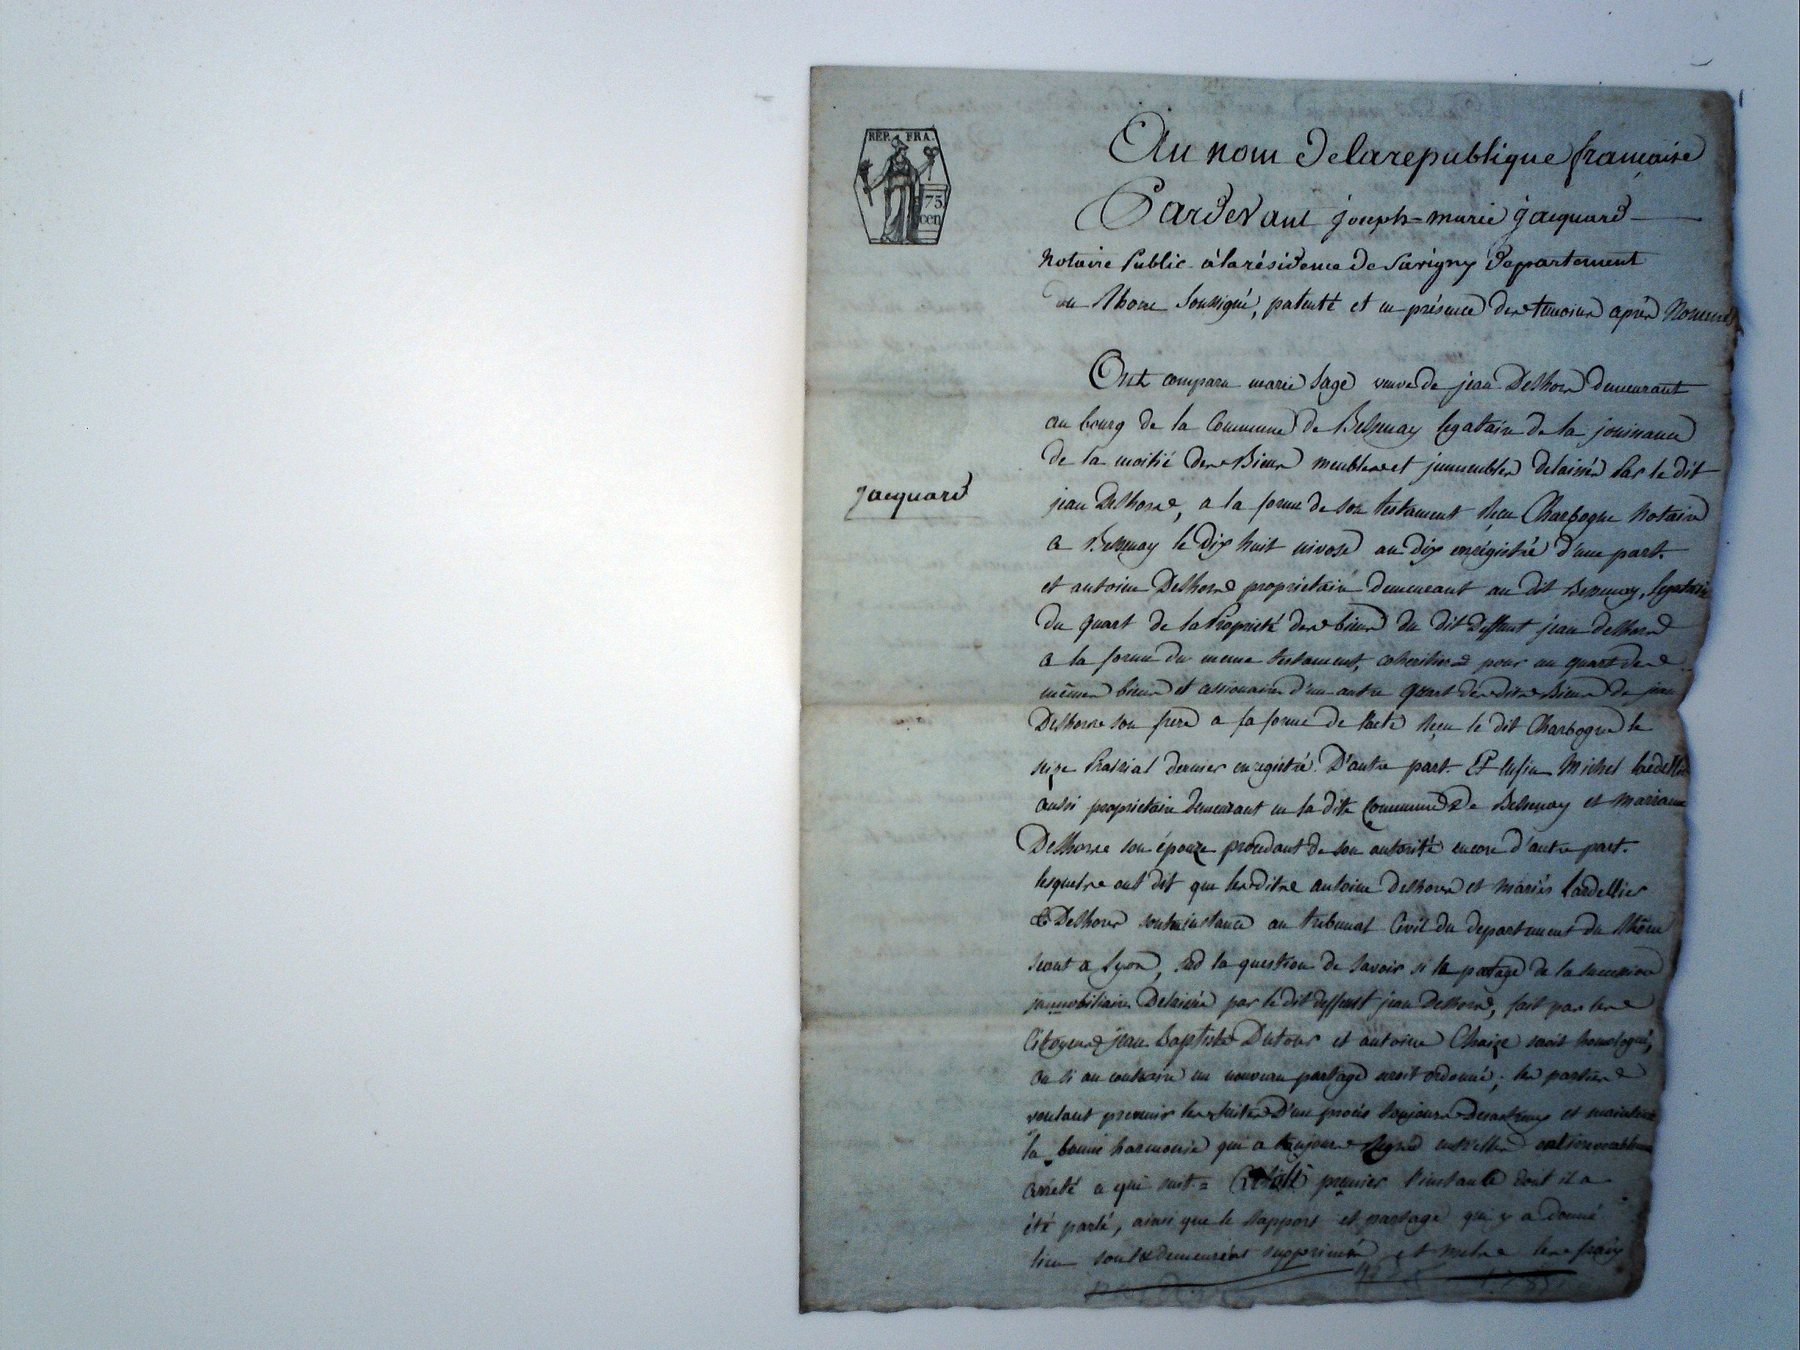 REP. FRA.
75
cen
Au nom de la republique française
Pardevant joseph-marie jacquard
Notaire Public à la résidence de Savigny département
du Rhone soussigné, patenté et en présence des temoins après Nommés
Ont comparu marie sage veuve de jean Delhorme demeurant
au bourg de la Commune de Bessenay legataire de la jouissance
de la moitié des Biens meubles et jmmeubles delaissés Par le dit
jacquard
jean Delhorme, a la forme de son testament Reçu Charbogne Notaire
a Bessenay le dix huit nivose an dix enregistré d'une part.
et antoine Delhorme proprietaire demeurant au dit Bessenay, legataire
du quart de la Propriété des biens du dit deffunt jean delhorme
a la forme du meme testament, coheritier pour un quart des
mêmes biens et cessionaire d'un autre quart desdits Biens de jean
Delhorme son frere a la forme de l'acte Reçu le dit Charbogne le
seize Prairial dernier enregistré. D'autre part. Et enfin Michel Lardellier
aussi proprietaire demeurant en la dite Commune de Bessenay et Mariane
Delhorme son épouze procedant de son autorité encore d'autre part.
lesquels ont dit que lesdits antoine delhorme et mariés Lardellier
& Delhorme sont en instance au tribunal Civil du departement du Rhône
seant a Lyon, sur la question de savoir si le partage de la succession
jmmobiliaire Delaissée par le dit deffunt jean Delhorme, fait par les
Citoyens jean Baptiste Dutour et antoine Chaize seroit homologué,
ou si au contraire un nouveau partage seroit ordonné; les parties
voulant prevenir les suites D'un procès toujours desastreux et maintenir
la bonne harmonie qui a toujours Regné entr'elles ont irrevocablement
arreté ce qui suit = premier l'instance dont il a
été parlé, ainsi que le Rapport et partage qui y a donné
lieu sont demeurés supprimés et les fraix